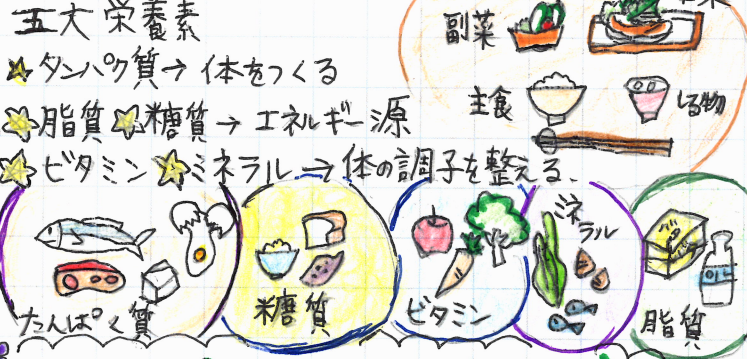 五大栄養素
タンパク質→体をつくる
脂質 糖質→エネルギー源
ビタミン ミネラル→体の調子を整える.
副菜
主食
しる物
たんぱく質
糖質
ビタミン
ミネラル
OIL
脂質